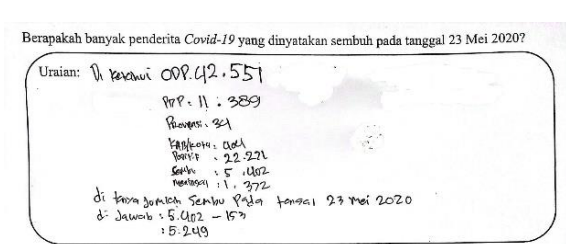 Berapakah banyak penderita Covid-19 yang dinyatakan sembuh pada tanggal 23 Mei 2020?
Uraian: Di ketahui ODP. 42.551
PDP : 11 . 389
Provinsi . 34
KAB/Kota : 404
Positif . 22.271
Sembu : 5 .402
meninggal : 1. 372
di tanya Jomlah Sembu Pada tanggal 23 mei 2020
di Jawab : 5.402 - 153
: 5.249